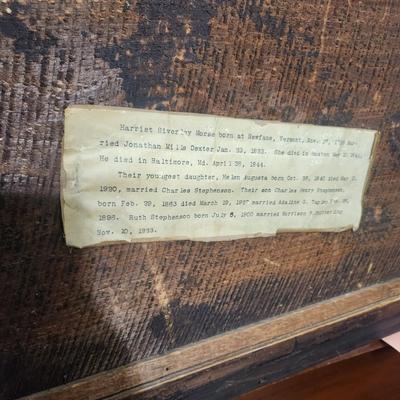 Harriet Riverby Morse born at Newfane, Vermont, Nov. 1798 Mar-
ried Jonathan Mills Dexter Jan. 23, 1823. She died in Boston May
He died in Baltimore, Md. April 28, 1844.
Their youngest daughter, Helen Augusta born Oct. 28, died May
1920, married Charles Stephenson. Their son Charles Henry Stephenson,
born Feb. 29, 1863 died March 19, 1927 married Adaline S. Feb.
1896. Ruth Stephenson born July 8, 1900 married Harrison
Nov. 10, 1933.